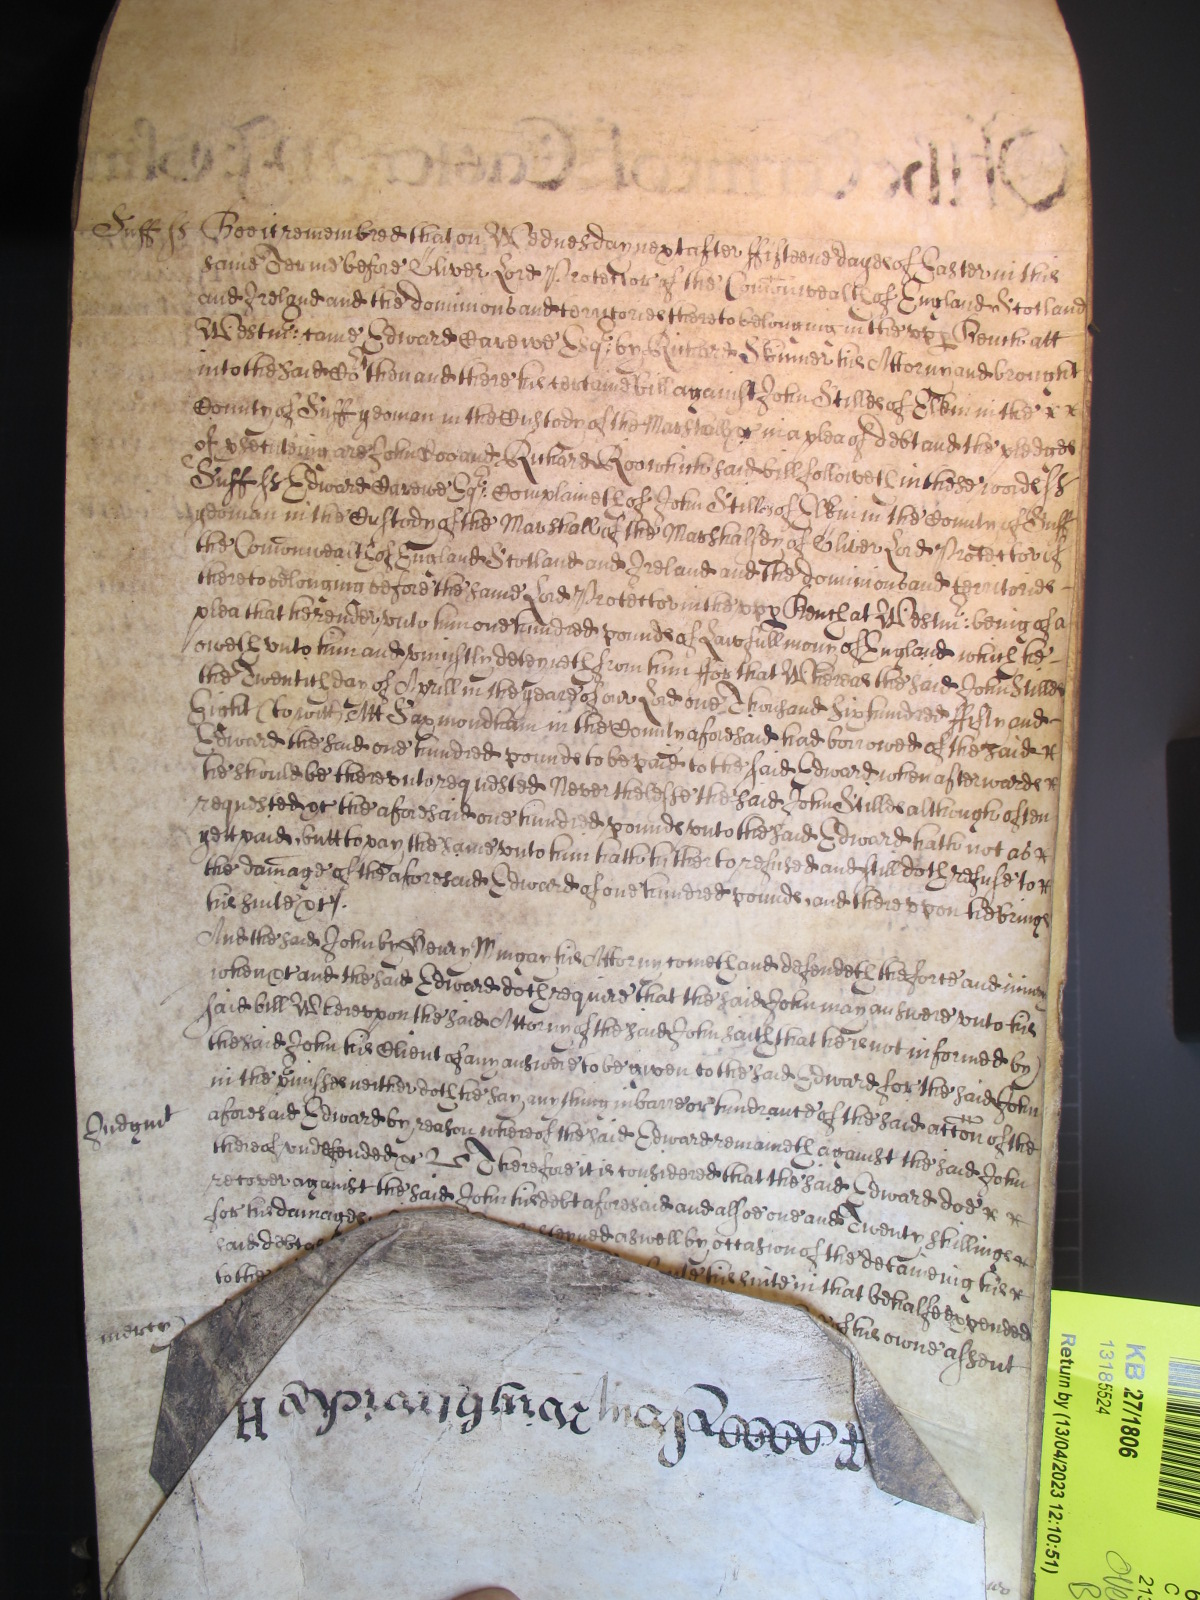 Suff ss Bee it remembred that on Wednesday next after fifteene dayes of Easter in this
same Terme before Oliver Lord Protector of the Comonwealth of England Scotland
and Ireland and the dominions and territories thereto belonging in the upp Bench att
Westm: came Edward Carewe Esqr: by Richard Skinner his Attorny and brought
into the said Co:rt then and there his certaine bill against John Stilles of in the
County of Suff yeoman in the Custody of the Marshall &c in a plea of debt and the pledges
of psecuteing are John Doo and Richard Roo which said bill followeth in these words ss
Suff ss Edward Carewe Esqr: Complaineth of John Stilles of in the County of Suff
yeoman in the Custody of the Marshall of the Marshalsey of Oliver Lord Protector of
the Comonwealth of England Scotland and Ireland and the dominions and territories
thereto belonging before the same Lord Protector in the upp Bench at Westm: being of a
plea that he render unto him one hundred pounds of Lawfull mony of England which he
oweth unto him and uniustly deteyneth from him ffor that Whereas the said John Stilles
the Twentith day of Aprill in the yeare of our Lord one Thousand Six hundred ffifty and
Eight (to witt) Att Saxmondham in the County aforesaid had borrowed of the said
Edward the said one hundred pounds to be paid to the said Edward when afterwards
he should be thereunto requested Neverthelesse the said John Stilles although often
requested &c the aforesaid one hundred pounds unto the said Edward hath not as
yett paid, butt to pay the same unto him hath hitherto refused and still doth refuse to
the damage of the aforesaid Edward of one hundred pounds, and thereupon hee brings
his suite &c.
And the said John by Henry Mingay his Attorny cometh and defendeth the force and iniury
when &c and the said Edward doth require that the said John may answere unto his
said bill Whereupon the said Attorny of the said John saith that he is not informed by
the said John his Client of any answere to be given to the said Edward for the said John
in the pmisses neither doth he say any thing in barre or hindrance of the said accon of the
Judgmt aforesaid Edward by reason whereof the said Edward remaineth against the said John
thereof undefended &c Therefore it is considered that the said Edward doe
recover against the said John his debt aforesaid and alsoe one and Twenty shillings
for his damages aswell by occasion of the detaineing his
said debt his suite in that behalfe expended
to the his owne assent
mercy
KB 271806
13185524
Return by (13/04/2023 12:10:51)